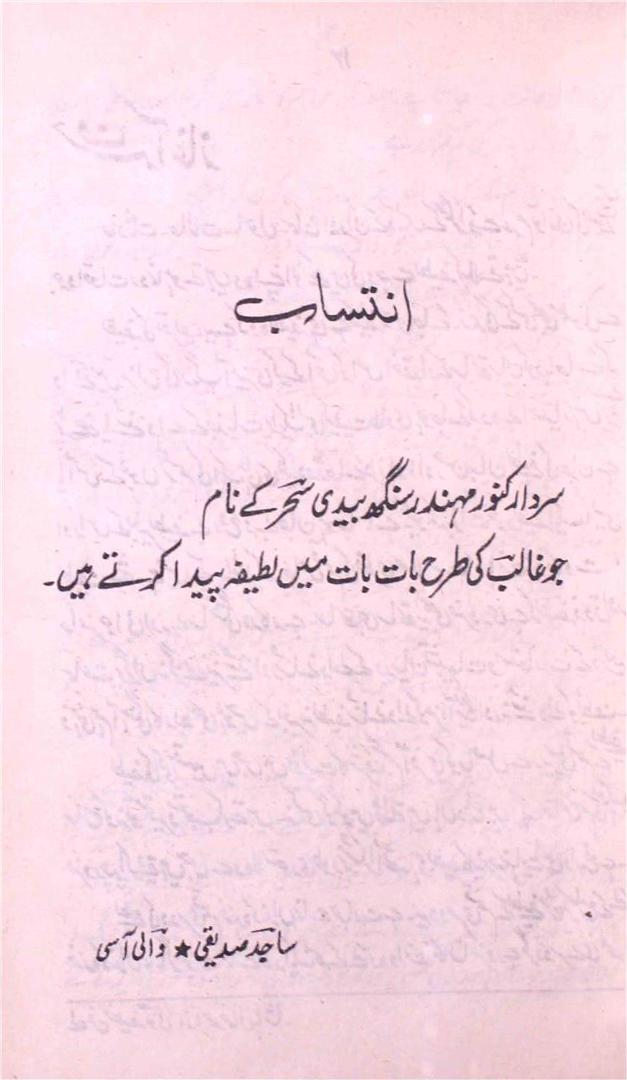 انتساب
سردار کنور مہندر سنگھ بیدی سحرؔ کے نام
جو غالبؔ کی طرح بات بات میں لطیفہ پیدا کرتے ہیں۔
ساجدؔ صدیقی ★ والی آسی